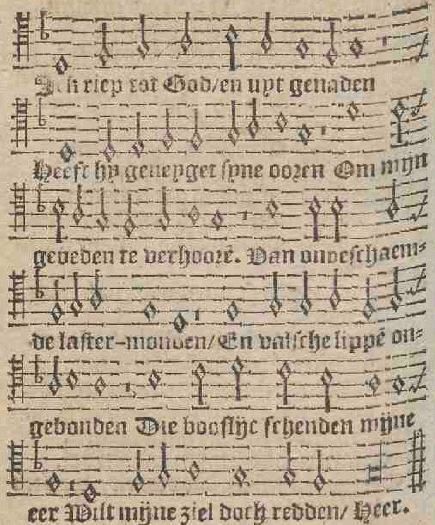 Ick riep tot God/en uyt genaden
Heeft hy geneyget syne ooren Om mijn
gebeden te verhoorē. Van onbeschaem-
de laster-monden/En valsche lippē on-
gebonden Die booslijc schenden mijne
eer Wilt mijne ziel doch redden/ Heer.